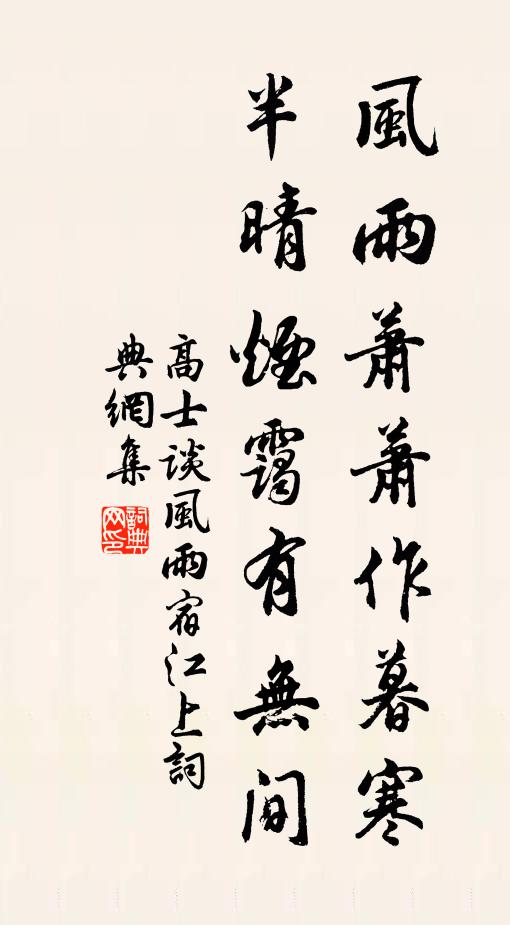 風雨蕭蕭作暮寒
半晴煙靄有無間
高士談風雨宿江上詞
典網集
詞典
网印